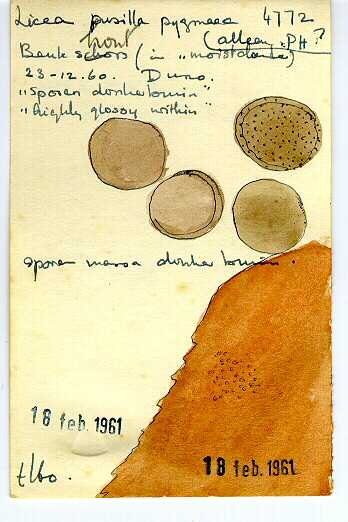 Licea pusilla pygmaea 4772
hout (alleen "PH?
Beuk schors (in "moist
23-12-60. Duno.
"sporen donkerbruin"
"highly glossy within"
sporen massa donker bruin.
18 feb. 1961
18 feb. 1961